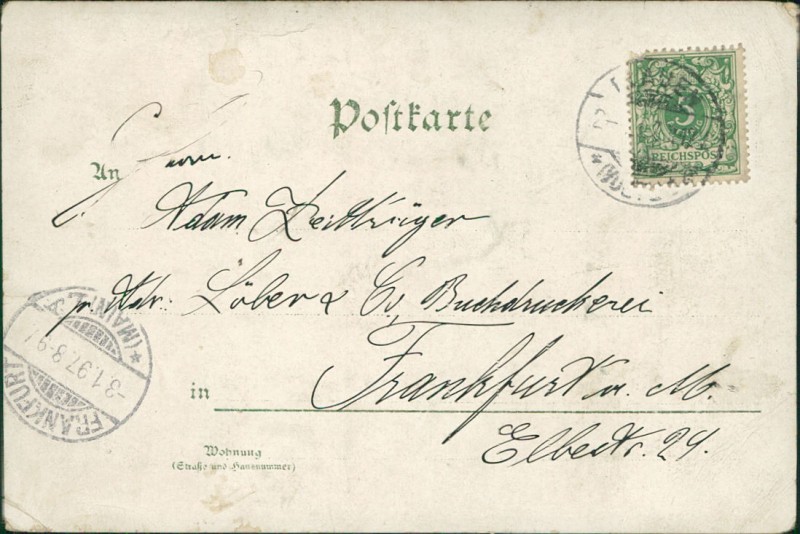 Postkarte
An Herrn
Adam Zeitträger
pr Adr. Löber & Co, Buchdruckerei
in Frankfurt a. M.
Elbestr. 24.
Wohnung
(Straße und Hausnummer)
5
REICHSPOST
FRANKFURT
*(MAIN)
-3.1.97.8-9